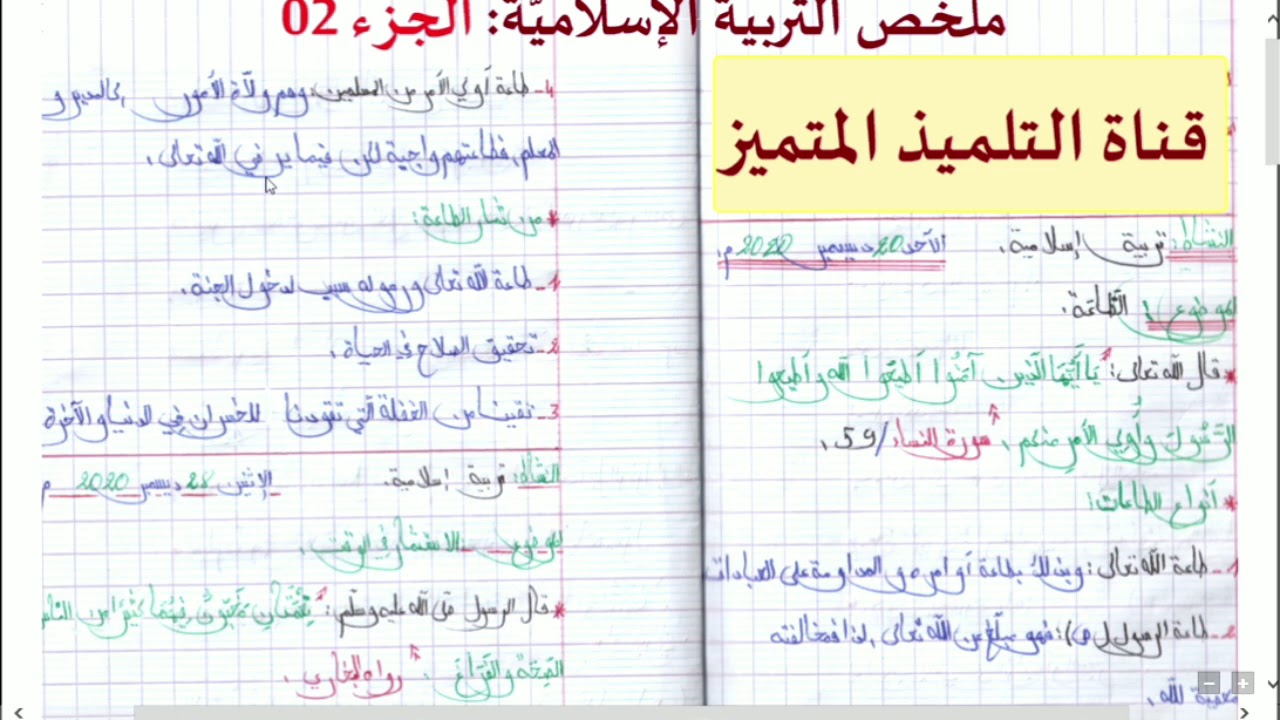 ملخص التربية الإسلاميّة: الجزء 02
قناة التلميذ المتميز
النشاط: تربية إسلامية. الأحد 20 ديسمبر 2020 م.
الموضوع: الطّاعة.
* قال الله تعالى: "يَا أَيُّهَا الَّذِينَ آمَنُوا أَطِيعُوا اللّه وأَطِيعُوا
الرَّسُولَ وأُولِي الأَمْرِ مِنْكُم." سورة النساء/59.
* أنواع الطاعات:
1- طاعة الله تعالى: وبذلك بطاعة أوامره والمداومة على العبادات
2- طاعة الرسول (ص): فهو مبلّغ عن اللّه تعالى، لذا فمخالفته
معصية لله.
4- طاعة أولي الأمر من المسلمين: وهم ولاّة الأمور، كالمدير و
المعلم، فطاعتهم واجبة لكن فيما يرضي اللّه تعالى.
* من ثمار الطاعة:
1- طاعة للّه تعالى ورسوله سبب لدخول الجنة.
2- تحقيق الصلاح في الحياة.
3- تقينا من الغفلة الّتي تقودنا للخسران في الدنيا والآخرة
النشاط: تربية إسلامية. الإثنين 28 ديسمبر 2020 م
الموضوع: الاستثمار في الوقت.
* قال الرسول صلى اللّه عليه وسلّم: "نِعْمَتَانِ مَغْبُونٌ فِيهِمَا كَثِيرٌ من النّاس
الصِّحَّة والفَرَاغ." رواه البخاري.